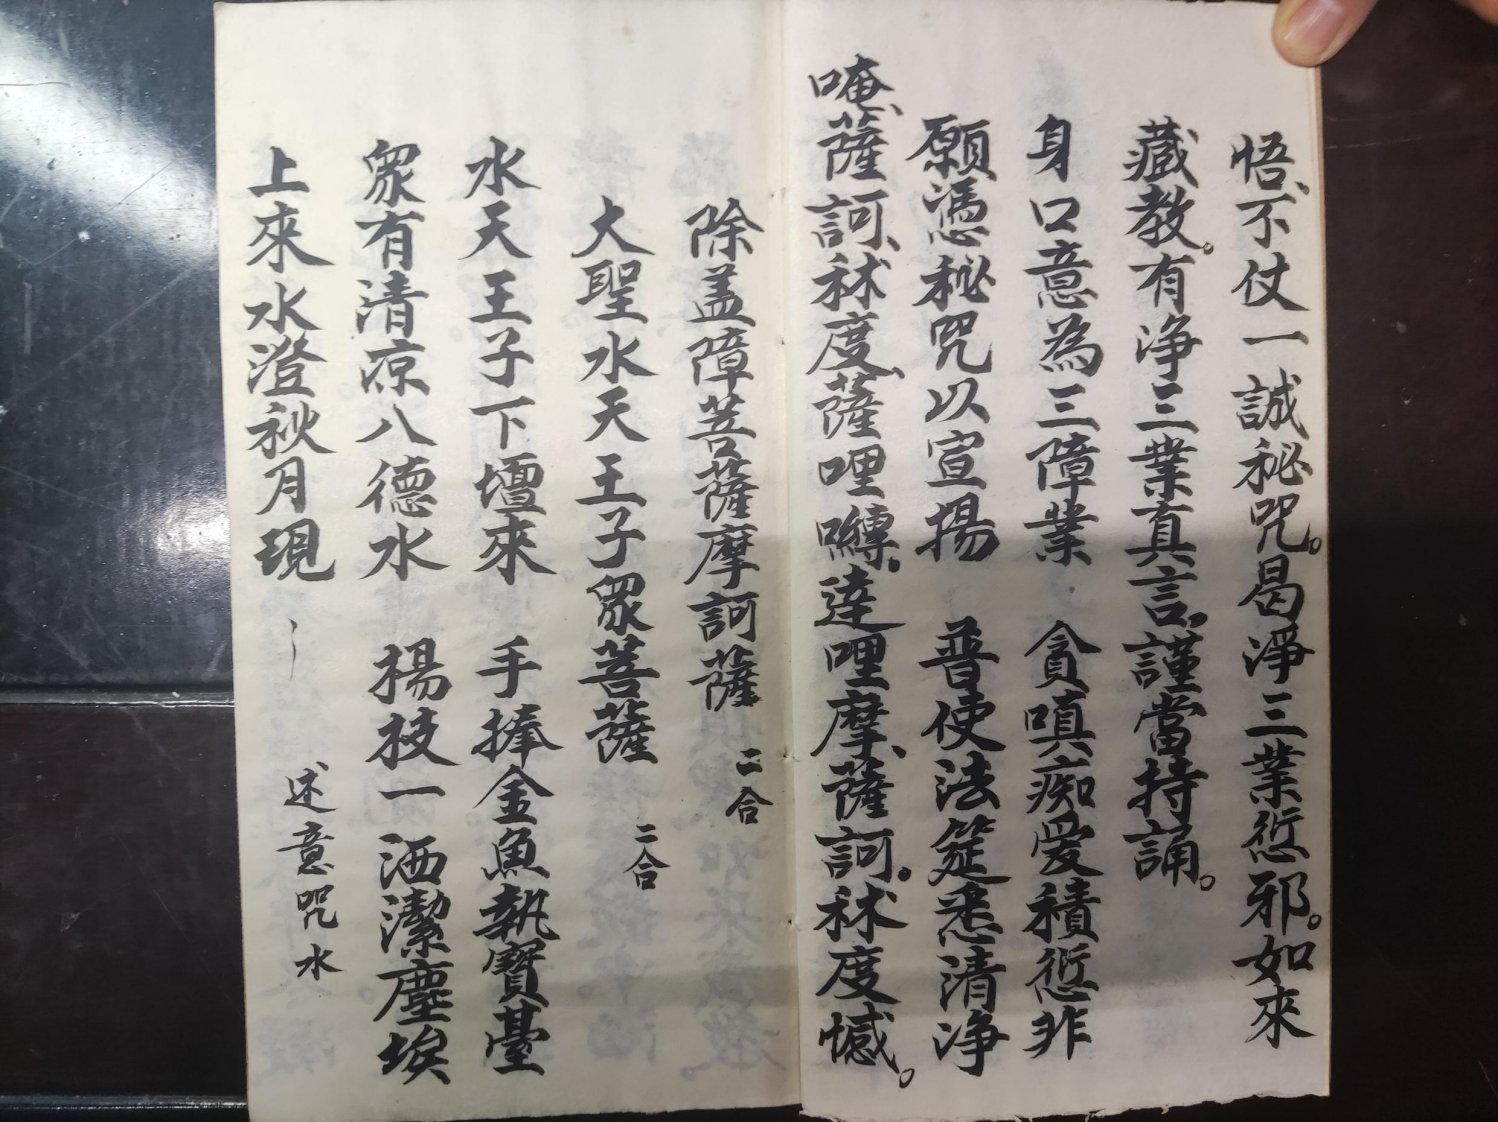 悟、不仗一誠秘咒。曷淨三業愆邪。如來
藏教。有淨三業真言。謹當持誦。
身口意為三障業　貪嗔痴愛積愆非
願憑秘咒以宣揚　普使法筵悉清淨
唵、薩訶、秫度、薩哩嚩。達哩摩、薩訶。秫度憾。
除盖障菩薩摩訶薩　二合
大聖水天王子眾菩薩　二合
水天王子下壇來　手捧金魚執寶臺
眾有清凉八德水　楊枝一洒潔塵埃
上來水澄秋月現　述意咒水